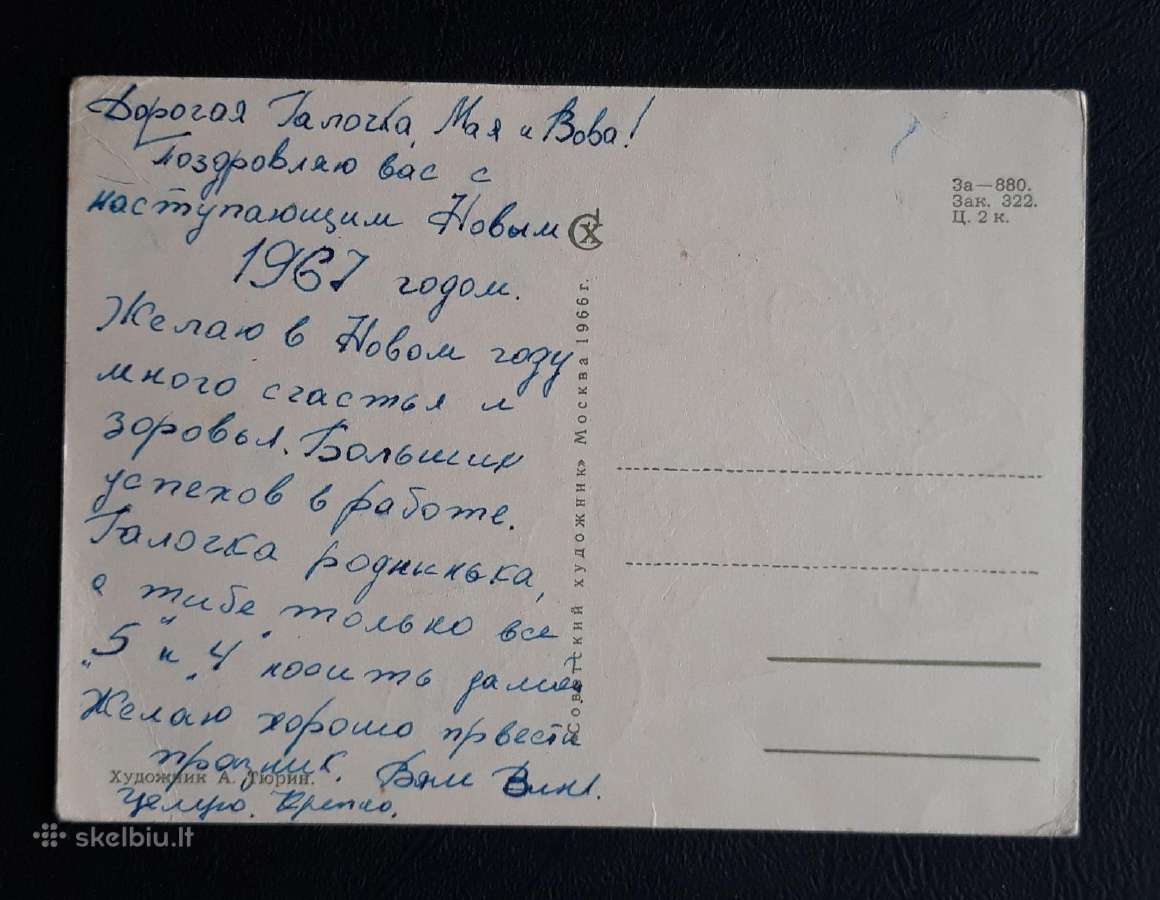 Дорогая Галочка, Мая и Вова!
Поздровляю вас с
наступающим Новым
1967 годом.
Желаю в Новом году
много счастья и
зоровья. Больших
успехов в работе.
Галочка роднинька,
а тибе только все
„5" и „4" носить дамой
Желаю хорошо првести
празник.
Целую. Крепко.
Художник А. Тюрин.
СХ
«Советский художник» Москва 1966 г.
За—880.
Зак. 322.
Ц. 2 к.
skelbiu.lt